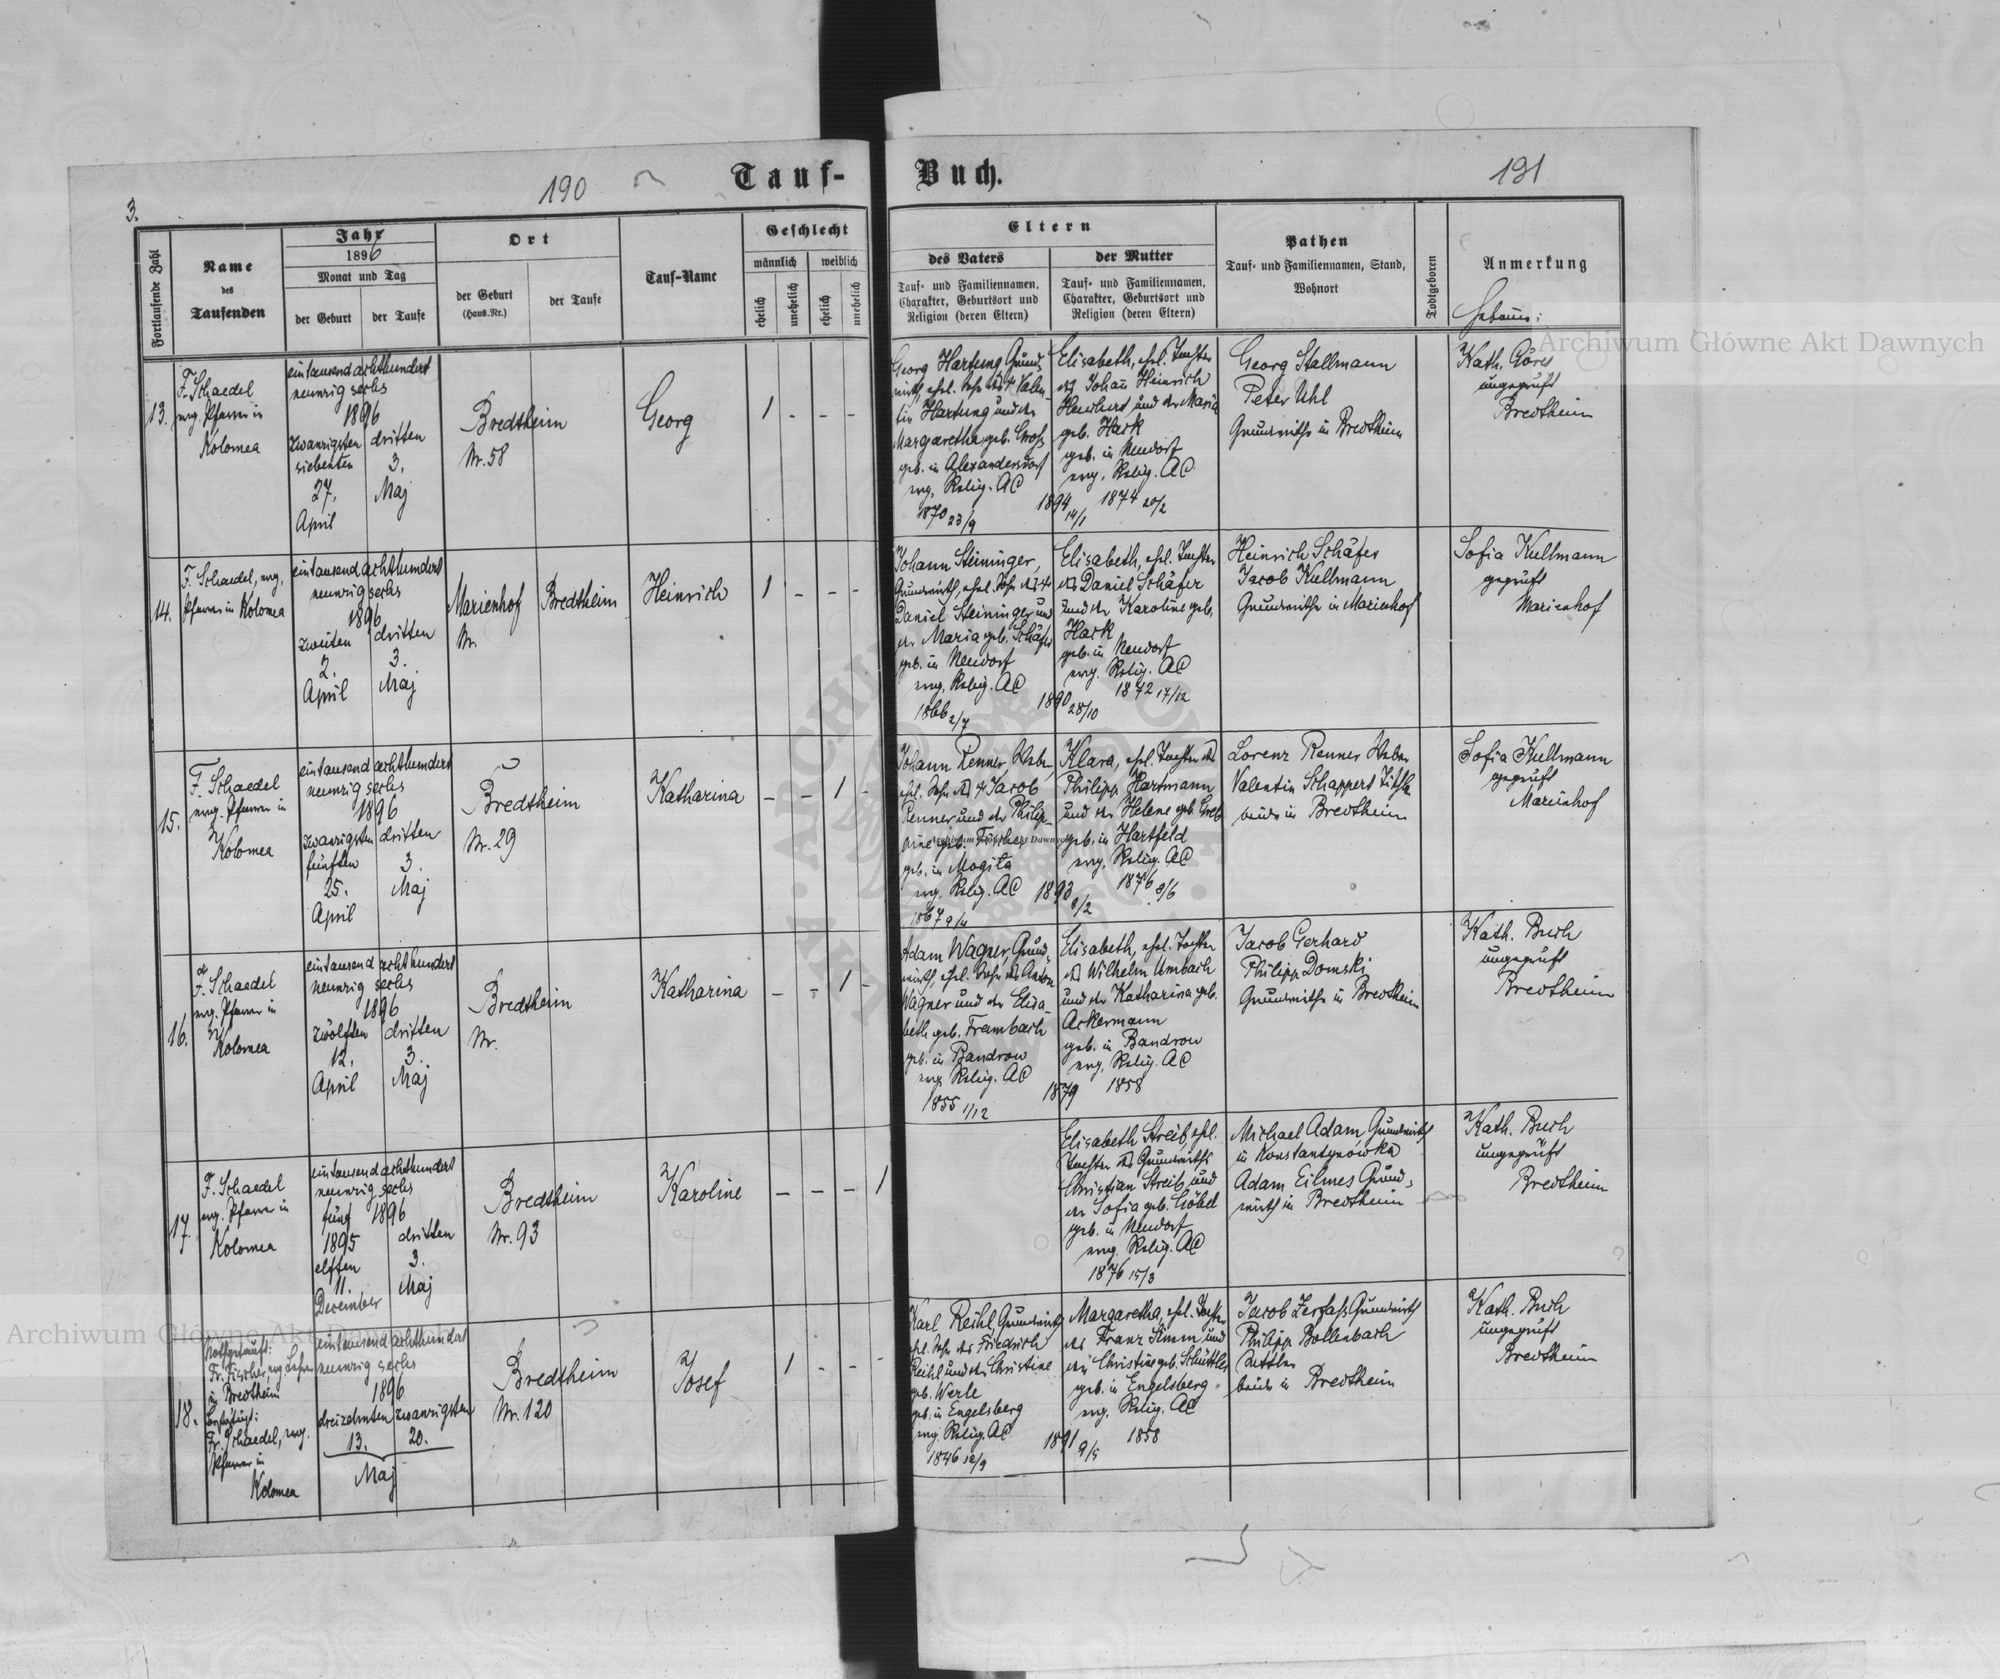 190
Tauf-
Buch.
191
3.
Fortlaufende Zahl
Name
des
Taufenden
Jahr
1896
Monat und Tag
der Geburt
der Taufe
Ort
der Geburt
(Haus.Nr.)
der Taufe
Tauf-Name
Geschlecht
männlich
weiblich
ehelich
unehelich
ehelich
unehelich
Eltern
des Vaters
Tauf- und Familiennamen,
Charakter, Geburtsort und
Religion (deren Eltern)
der Mutter
Tauf- und Familiennamen,
Charakter, Geburtsort und
Religion (deren Eltern)
Pathen
Tauf- und Familiennamen, Stand,
Wohnort
Todtgeboren
Anmerkung
Hebamme:
Archiwum Główne Akt Dawnych
13.
F. Schaedel
evg. Pfarrer in
Kolomea
eintausend achthundert
neunzig sechs
1896
zwanzigsten
siebenten
27.
April
dritten
3.
Maj
Bredtheim
Nr. 58
Georg
1 - - -
Georg Hartung, Grund-
wirth, ehel. Sohn des † Valen-
tin Hartung und der
Margaretha geb. Groß
geb. in Alexandersdorf
evg. Relig. AC
1870 23/9
1894 14/1
Elisabeth, ehel. Tochter
des Johann Heinrich
und der Maria
geb. Hark
geb. in Neudorf
evg. Relig. AC
1874 20/2
Georg Stallmann
Peter Uhl
Grundwirthe in Bredtheim
Kath. Göres
ungeprüft
Bredtheim
14.
F. Schaedel, evg.
Pfarrer in Kolomea
eintausend achthundert
neunzig sechs
1896
zweiten
2.
April
dritten
3.
Maj
Marienhof
Nr.
Bredtheim
Heinrich
1 - - -
Johann Steininger,
Grundwirth, ehel. Sohn des †
Daniel Steininger und
der Maria geb. Schäfer
geb. in Neudorf
evg. Relig. AC
1866 2/7
1890 28/10
Elisabeth, ehel. Tochter
des Daniel Schäfer
und der Karoline geb.
Hark
geb. in Neudorf
evg. Relig. AC
1872 17/12
Heinrich Schäfer
Jacob Kullmann
Grundwirthe in Marienhof
Sofia Kullmann
geprüft
Marienhof
15.
F. Schaedel
evg. Pfarrer in
Kolomea
eintausend achthundert
neunzig sechs
1896
zwanzigsten
fünften
25.
April
dritten
3.
Maj
Bredtheim
Nr. 29
Katharina
- - 1 -
Johann Renner, Weber,
ehel. Sohn des † Jacob
Renner und der Philip-
pine geb. Fischer
geb. in Mogila
evg. Relig. AC
1867 9/4
1893 8/2
Klara, ehel. Tochter des
Philipp Hartmann
und der Helene geb.
geb. in Hartfeld
evg. Relig. AC
1876 8/6
Lorenz Renner Weber
Valentin Schappert Tischler
beide in Bredtheim
Sofia Kullmann
geprüft
Marienhof
16.
F. Schaedel
evg. Pfarrer in
Kolomea
eintausend achthundert
neunzig sechs
1896
zwölften
12.
April
dritten
3.
Maj
Bredtheim
Nr.
Katharina
- - 1 -
Adam Wagner, Grund-
wirth, ehel. Sohn des Anton
Wagner und der Elisa-
beth geb. Frambach
geb. in Bandrow
evg. Relig. AC
1855 1/12
1879
Elisabeth, ehel. Tochter
des Wilhelm Umbach
und der Katharina geb.
Ackermann
geb. in Bandrow
evg. Relig. AC
1858
Jacob Gerhard
Philipp Domski
Grundwirthe in Bredtheim
Kath. Buch
ungeprüft
Bredtheim
17.
F. Schaedel
evg. Pfarrer in
Kolomea
eintausend achthundert
neunzig sechs
fünf 1896
1895
elften
11.
December
dritten
3.
Maj
Bredtheim
Nr. 93
Karoline
- - - 1
Elisabeth Streib, ehel.
Tochter des Grundwirths
Christian Streib und
der Sofia geb. Göbel
geb. in Neudorf
evg. Relig. AC
1876 15/3
Michael Adam, Grundwirth
in Konstantynowka
Adam Eilmes Grund-
wirth in Bredtheim
Kath. Buch
ungeprüft
Bredtheim
18.
Nothgetauft:
Fr. Fischer, evg. Lehrer
in Bredtheim
bestätigt:
Fr. Schaedel, evg.
Pfarrer in
Kolomea
eintausend achthundert
neunzig sechs
1896
dreizehnten
13.
zwanzigsten
20.
Maj
Bredtheim
Nr. 120
Josef
1 - - -
Karl Reihl, Grundwirth
ehel. Sohn des Friedrich
Reihl und der Christine
geb. Werle
geb. in Engelsberg
evg. Relig. AC
1846 12/9
1891 9/5
Margaretha, ehel. Tochter
des Franz Simm und
der Christine geb. Schüttler
geb. in Engelsberg
evg. Relig. AC
1858
Jacob Zerfaß, Grundwirth
Philipp Bollenbach
beide in Bredtheim
Kath. Buch
ungeprüft
Bredtheim
Archiwum Główne Akt Dawnych